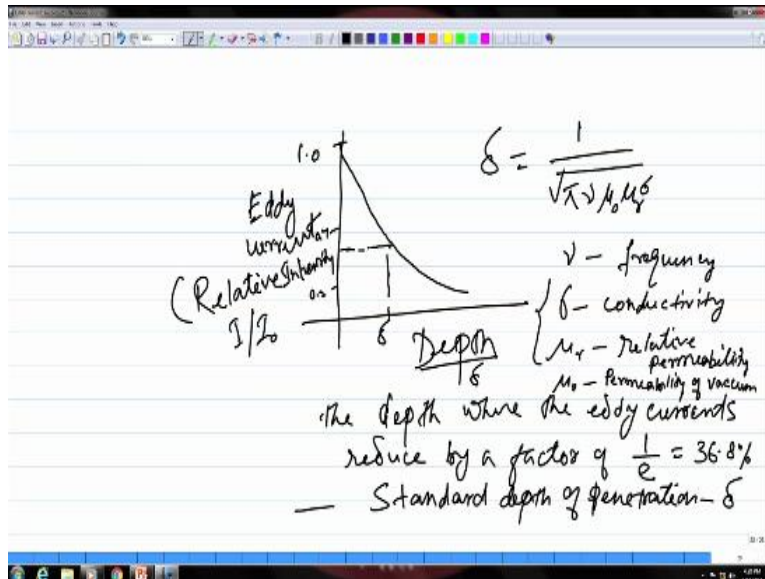 1.0
δ = 1 / √πνμ₀μᵣσ
Eddy
current
(Relative Intensity
I/I₀
δ
Depth
δ
ν - frequency
σ - conductivity
μᵣ - relative
permeability
μ₀ - Permeability of vaccum
The depth where the eddy currents
reduce by a factor of 1/e = 36.8%
— Standard depth of penetration - δ